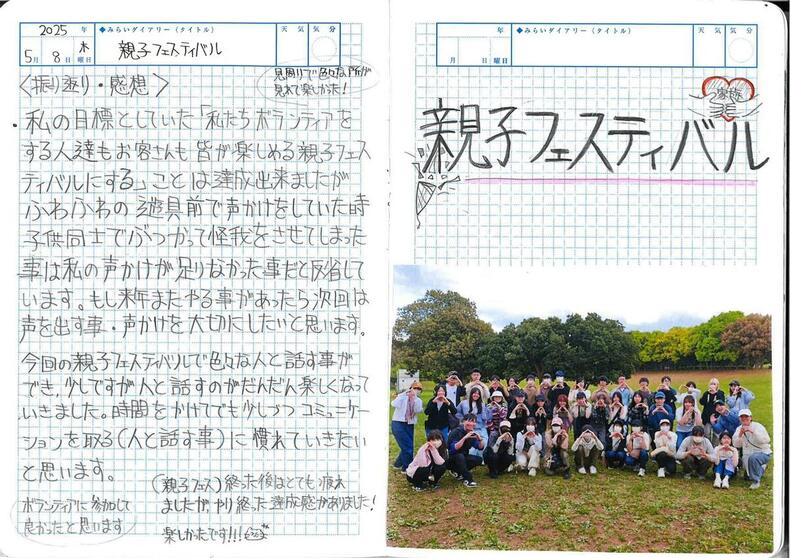 2025年
5月 8日 木曜日
◆みらいダイアリー（タイトル）
親子フェスティバル
天気
気分
〈振り返り・感想〉
見周りで色々な所が
見れて楽しかった!
・私の目標としていた「私たちボランティアを
する人達もお客さんも皆が楽しめる親子フェス
ティバルにする」ことは達成出来ましたが
ふわふわの遊具前で声かけをしていた時
子供同士でぶつかって怪我をさせてしまった
事は私の声かけが足りなかった事だと反省して
います。もし来年またやる事があったら次回は
声を出す事・声かけを大切にしたいと思います。
今回の親子フェスティバルで色々な人と話す事が
でき、少しですが人と話すのがだんだん楽しくなって
いきました。時間をかけてでも少しづつコミュニケー
ションを取る(人と話す事)に慣れていきたい
と思います。
(親子フェス)終った後はとても疲れ
ましたが、やり終った達成感がありました!
楽しかったです!!!
ボランティアに参加して
良かったと思います
年
月 日 曜日
◆みらいダイアリー（タイトル）
天気
気分
家族
親子フェスティバル